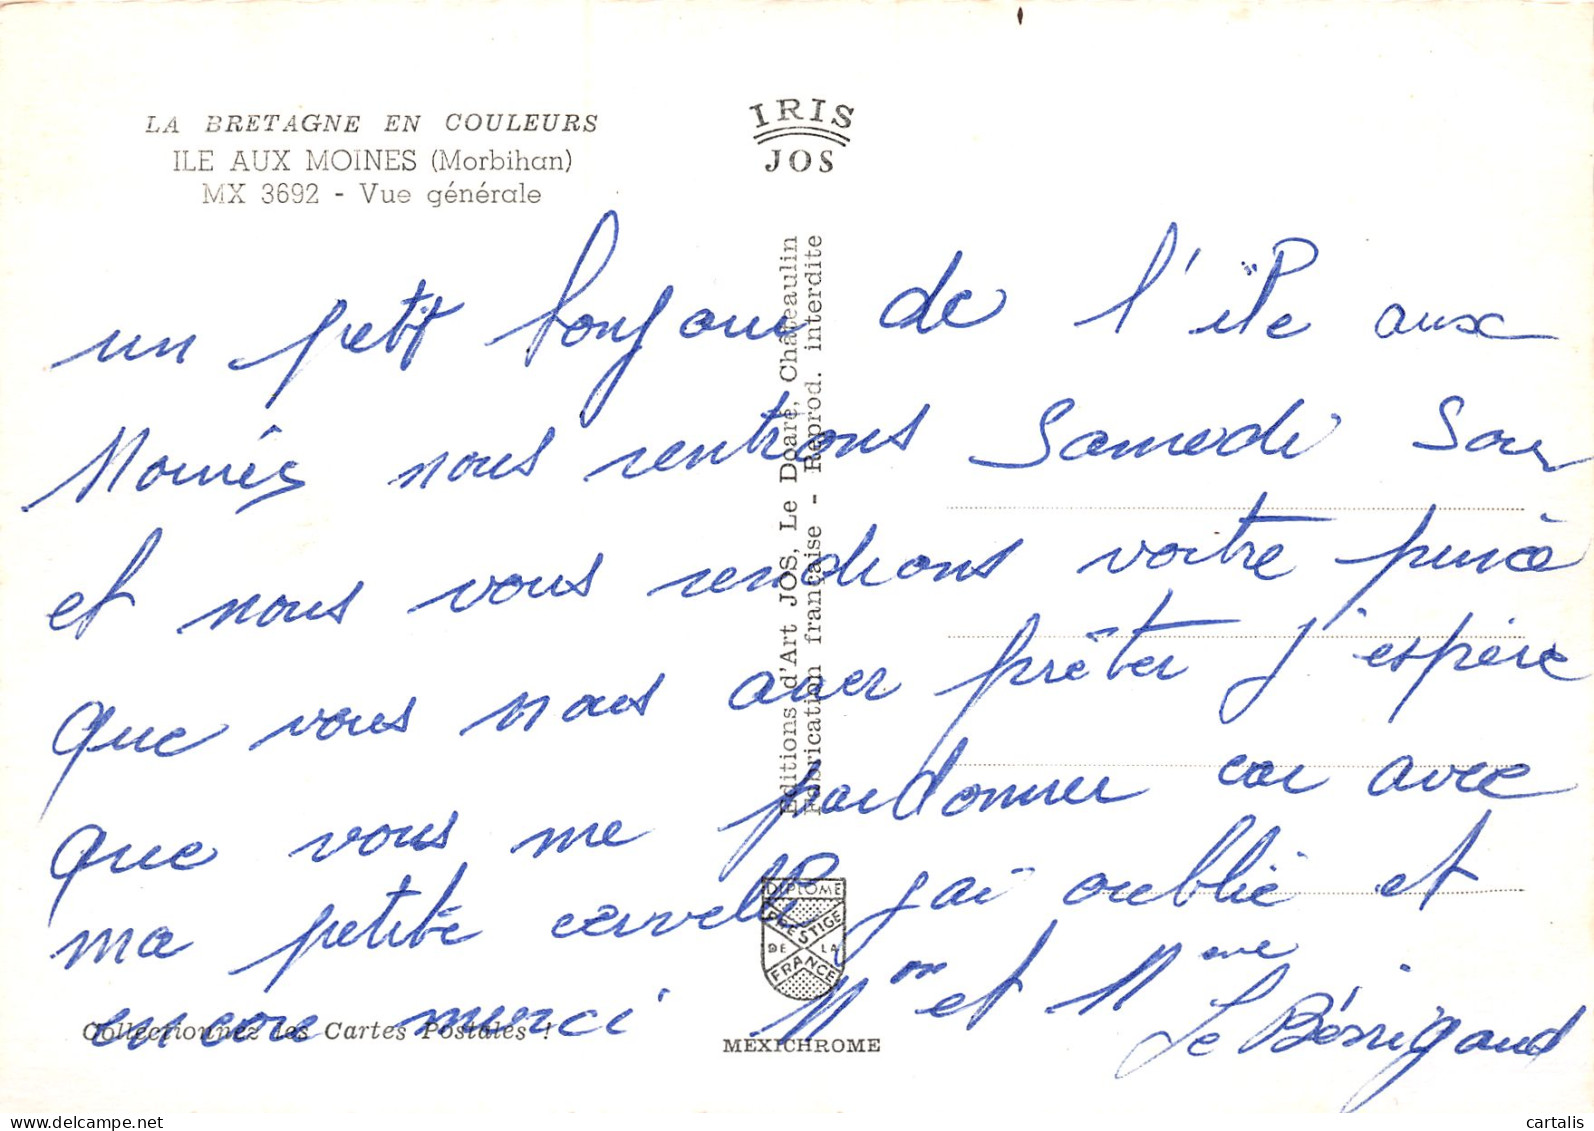 LA BRETAGNE EN COULEURS
ILE AUX MOINES (Morbihan)
MX 3692 - Vue générale
IRIS
JOS
Editions d'Art JOS, Le Doaré, Châteaulin
Fabrication française - Reprod. interdite
un petit bonjour de l'île aux
Moines nous rentrons Samedi Soir
et nous vous rendrons votre
que vous nous aver prêter j'espère
que vous me pardonner car avec
ma petite cervelle j'ai oublié et
encore merci Mon et Mme
Le
DIPLOME
PRESTIGE
DE LA
FRANCE
Collectionnez les Cartes Postales !
MEXICHROME
delcampe.net
cartalis